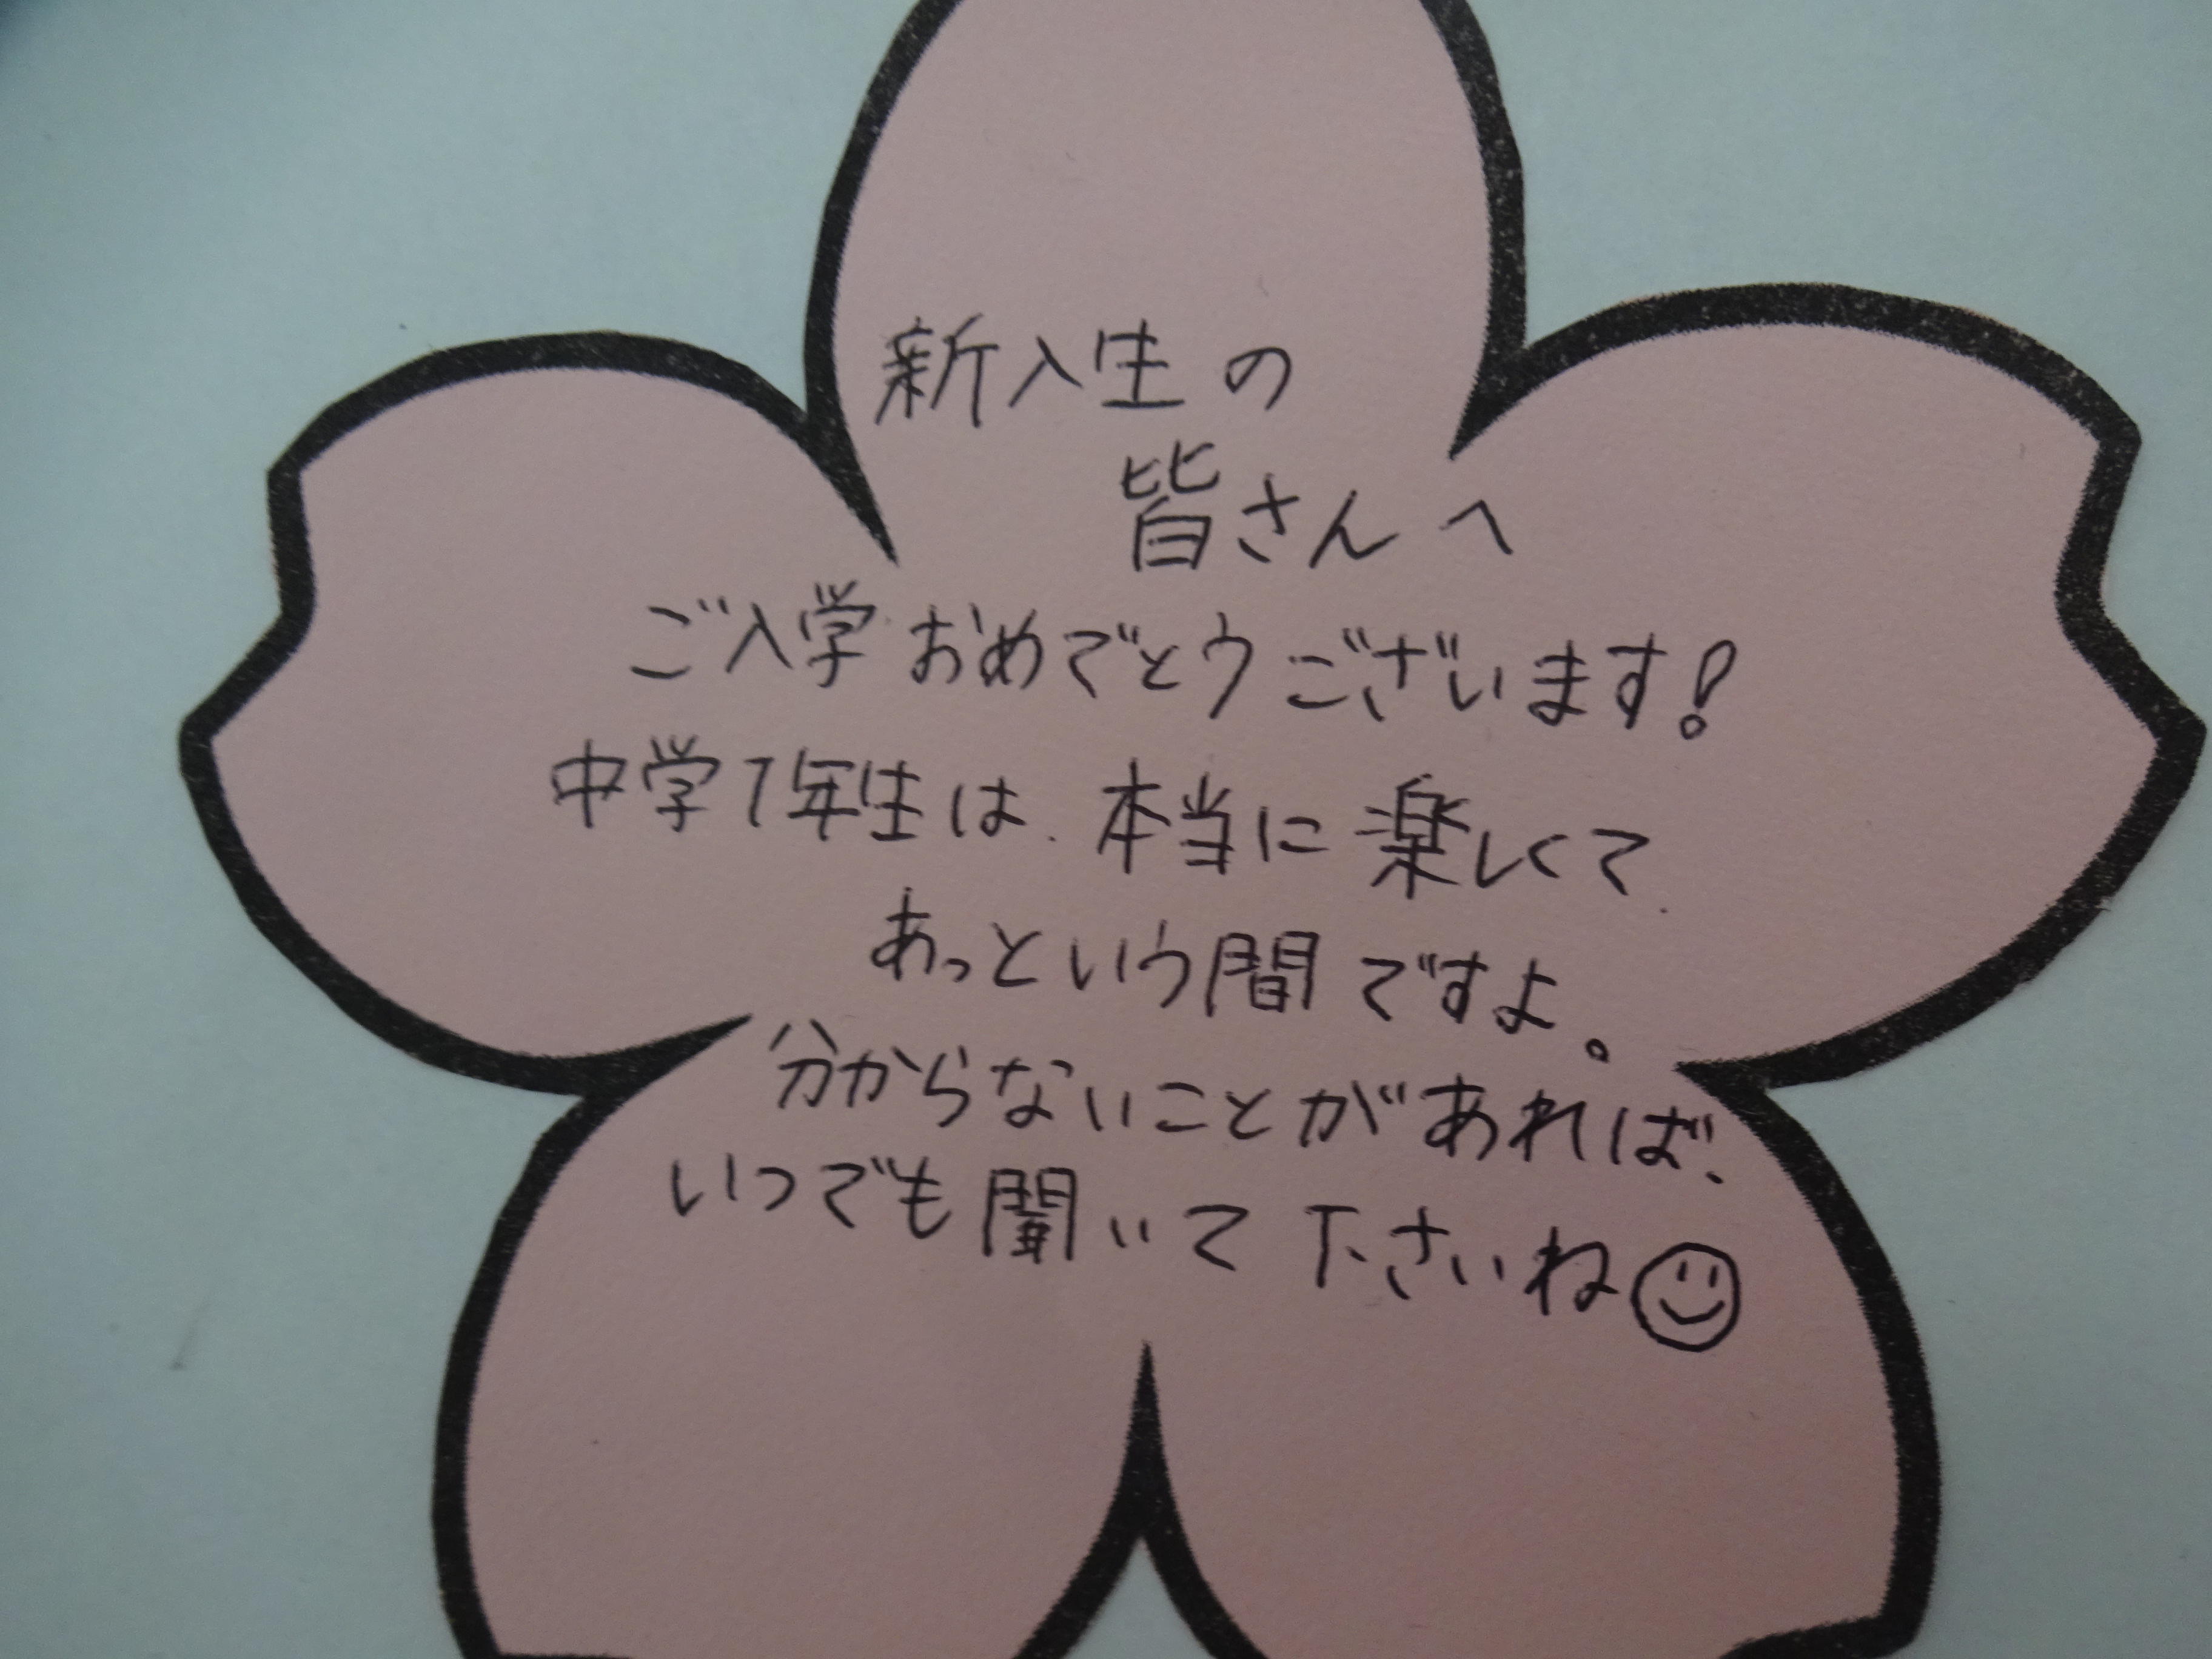 新入生の
皆さんへ
ご入学おめでとうございます!
中学1年生は、本当に楽しくて
あっという間ですよ。
分からないことがあれば、
いつでも聞いて下さいね